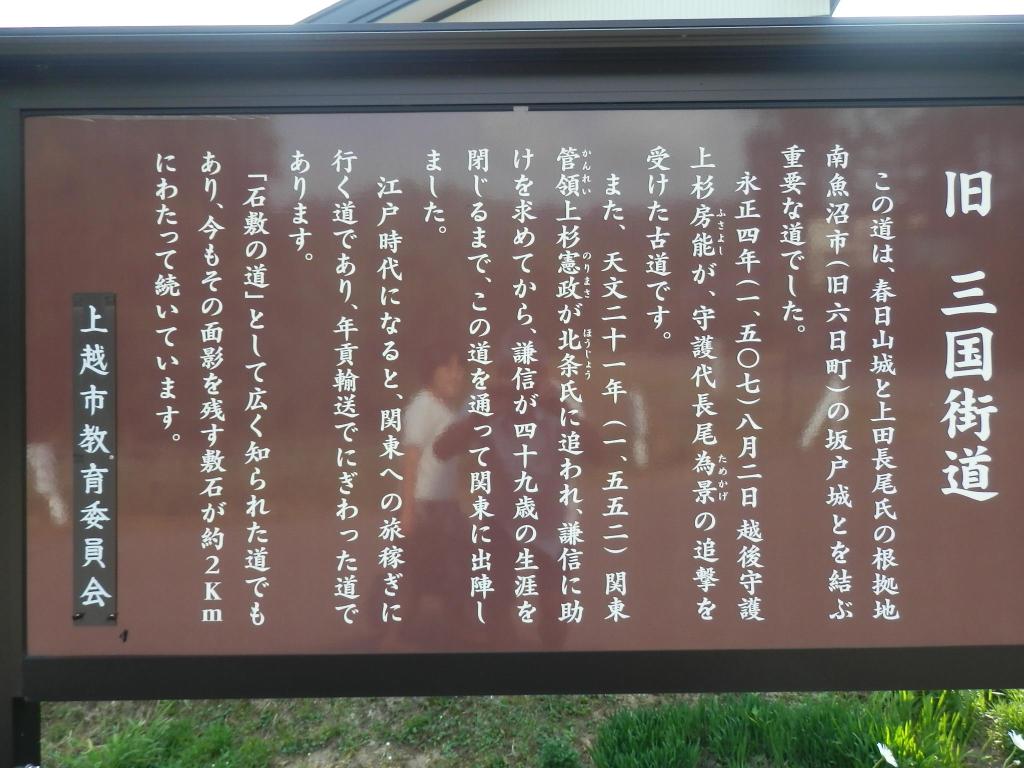 旧 三国街道
この道は、春日山城と上田長尾氏の根拠地
南魚沼市(旧六日町)の坂戸城とを結ぶ
重要な道でした。
永正四年(一、五〇七)八月二日越後守護
上杉房能が、守護代長尾為景の追撃を
受けた古道です。
また、天文二十一年(一、五五二)関東
管領上杉憲政が北条氏に追われ、謙信に助
けを求めてから、謙信が四十九歳の生涯を
閉じるまで、この道を通って関東に出陣し
ました。
江戸時代になると、関東への旅稼ぎに
行く道であり、年貢輸送でにぎわった道で
あります。
「石敷の道」として広く知られた道でも
あり、今もその面影を残す敷石が約2Km
にわたって続いています。
上越市教育委員会